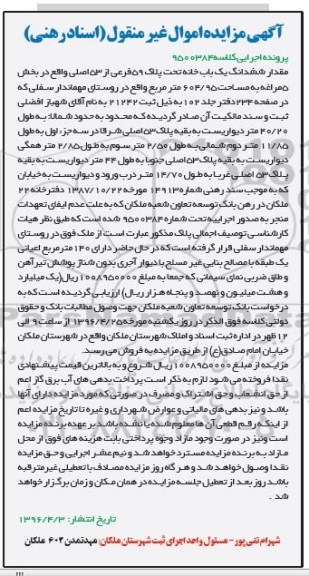 آگهی مزایده اموال غیر منقول (اسناد رهنی)
پرونده اجرایی کلاسه ۹۵۰۰۳۸۴
مقدار ششدانگ یک باب خانه تحت پلاک ۵۹ فرعی از ۵۳ اصلی واقع در بخش
۵ مراغه به مساحت ۶۰۴/۹۵ متر مربع واقع در روستای مهماندار سفلی که
در صفحه ۲۳۴ دفتر جلد ۱۰۲ به ذیل ثبت ۲۱۲۴۲ به نام آقای شهباز افضلی
ثبت و سند مالکیت آن صادر گردیده که محدود به حدود شمالا: به طول
۲۰/۲۰ متر دیواریست به بقیه پلاک ۵۳ اصلی شرقا در سه جزء اول به طول
۱۱/۸۵ متر دوم شمالی به طول ۲/۵۰ متر سوم به طول ۲/۸۵ متر همگی
دیواریست به بقیه پلاک ۵۳ اصلی جنوبا به طول ۴۴ متر دیواریست به بقیه
پلاک ۵۳ اصلی غربا به طول ۱۴/۷۰ متر درب ورود و دیواریست به خیابان
که به موجب سند رهنی شماره ۱۴۹۱۳ مورخه ۱۳۸۷/۱۰/۲۲ دفترخانه ۲۲
ملکان در رهن بانک توسعه تعاون شعبه ملکان که به علت عدم ایفای تعهدات
منجر به صدور اجراییه تحت شماره ۹۵۰۰۳۸۴ شده است که طبق نظر هیات
کارشناسی توصیف اجمالی پلاک مذکور عبارت است از ملک فوق در روستای
مهماندار سفلی قرار گرفته است که در حال حاضر دارای ۱۴۰ متر مربع اعیانی
یک طبقه با مصالح بنایی غیر مسلح با دیوار آجری بدون شناژ پوشش تیر آهن
و طاق ضربی نمای سیمانی که جمعا به مبلغ ۱۰۰۸۹۵۰۰۰۰ ریال (یک میلیارد
و هشت میلیون و نهصد و پنجاه هزار ریال) ارزیابی گردیده است که به
درخواست بانک توسعه تعاون شعبه ملکان جهت وصول مطالبات بانک و حقوق
دولتی کلاسه فوق الذکر در روز یکشنبه مورخه ۱۳۹۶/۴/۲۵ از ساعت ۹ الی
۱۲ ظهر در اداره ثبت اسناد و املاک شهرستان ملکان واقع در شهرستان ملکان
خیابان امام صادق(ع) از طریق مزایده به فروش می رسد.
مزایده از مبلغ ۱۰۰۸۹۵۰۰۰۰ ریال شروع و به بالاترین قیمت پیشنهادی
نقدا فروخته می شود لازم به ذکر است پرداخت بدهی های آب برق گاز اعم
از حق انشعاب و حق اشتراک و مصرف در صورتی که مورد مزایده دارای آنها
باشد و نیز بدهی های مالیاتی و عوارض شهرداری و غیره تا تاریخ مزایده اعم
از اینکه رقم قطعی آن ها معلوم شده یا نشده باشد بر عهده برنده مزایده
است ونیز در صورت وجود مازاد وجوه پرداختی بابت هزینه های فوق از محل
مازاد به برنده مزایده مسترد خواهد شد و نیم عشر اجرایی و حق مزایده
نقدا وصول خواهد شد و هر گاه روز مزایده مصادف با تعطیلی غیر مترقبه
باشد روز بعد از تعطیل جلسه مزایده در همان مکان و زمان برگزار خواهد
شد .
تاریخ انتشار: ۱۳۹۶/۴/۳
شهرام تقی پور - مسئول واحد اجرای ثبت شهرستان ملکان؛ مهدتمدن ۶۰۲ ملکان